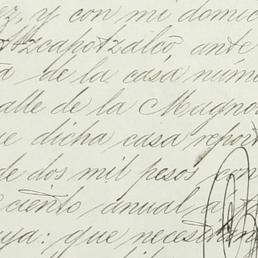 ez, y con mi domic
Atzcapotzalco ante
ta de la casa núme
alle de la Magno
ue dicha casa repor
de dos mil pesos con
ciento anual a
ya: que neces